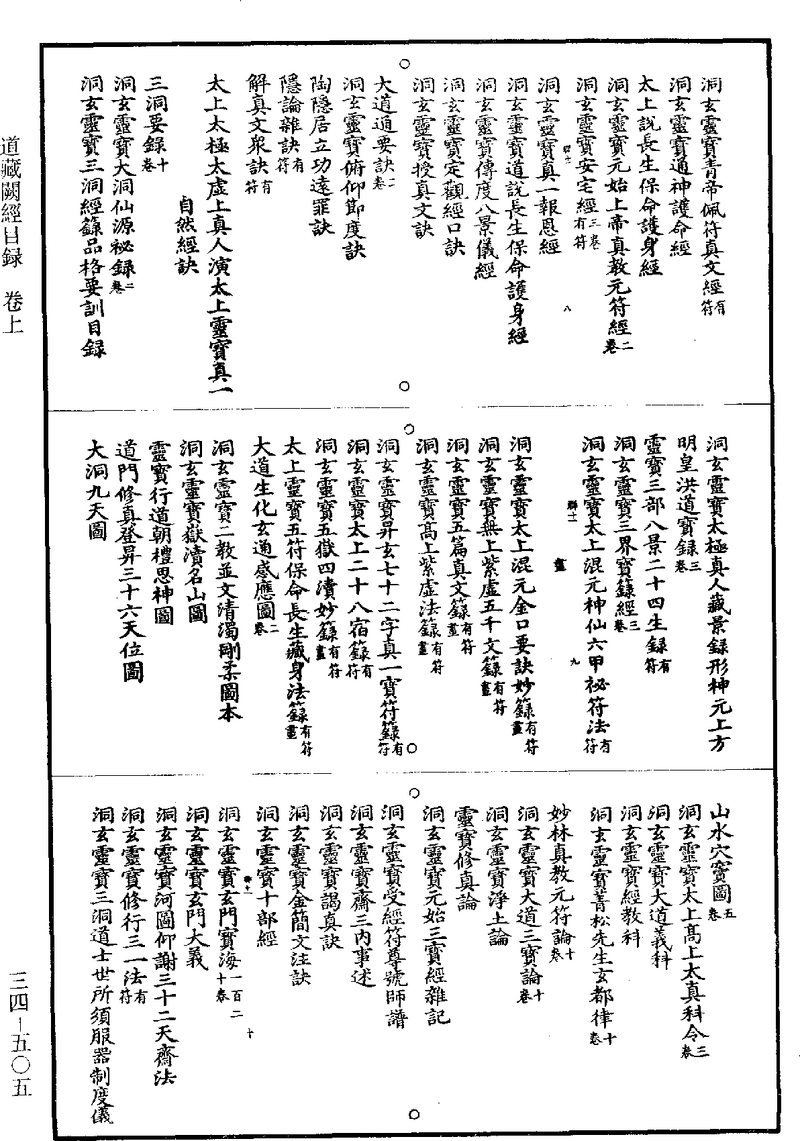 道藏闕經目録　卷上
洞玄靈寶青帝佩符真文經有符
洞玄靈寶通神護命經
太上説長生保命護身經
洞玄靈寶元始上帝真教元符經二卷
洞玄靈寶安宅經三卷有符
洞玄靈寶真一報恩經
八
洞玄靈寶道説長生保命護身經
洞玄靈寶傳度八景儀經
洞玄靈寶定觀經口訣
洞玄靈寶授真文訣
大道通要訣二卷
洞玄靈寶俯仰節度訣
陶隱居立功遠罪訣
隱論雜訣有符
解真文衆訣有符
太上太極太虚上真人演太上靈寶真一
自然經訣
三洞要録十卷
洞玄靈寶大洞仙源祕録二卷
洞玄靈寶三洞經籙品格要訓目録
洞玄靈寶太極真人藏景録形神元上方
明皇洪道寶録三卷
靈寶三部八景二十四生録有符
洞玄靈寶三界寶籙經三卷
洞玄靈寶太上混元神仙六甲祕符法有符
九
洞玄靈寶太上混元金口要訣妙籙有符畫
洞玄靈寶無上紫虚五千文籙有符畫
洞玄靈寶五篇真文籙有符畫
洞玄靈寶高上紫虚法籙有符畫
洞玄靈寶昇玄七十二字真一寶符籙有符
洞玄靈寶太上二十八宿籙有符
洞玄靈寶五嶽四瀆妙籙有符畫
太上靈寶五符保命長生藏身法籙有符畫
大道生化玄通感應圖二卷
洞玄靈寶二教並文清濁剛柔圖本
洞玄靈寶嶽瀆名山圖
靈寶行道朝禮思神圖
道門修真登昇三十六天位圖
大洞九天圖
山水穴竇圖五卷
洞玄靈寶太上高上太真科令三卷
洞玄靈寶大道義科
洞玄靈寶經教科
洞玄靈寶菁松先生玄都律十卷
妙林真教元符論十卷
洞玄靈寶大道三寶論十卷
洞玄靈寶淨土論
靈寶修真論
洞玄靈寶元始三寶經雜記
洞玄靈寶受經符尊號師譜
洞玄靈寶齋三内事述
洞玄靈寶謁真訣
洞玄靈寶金簡文注訣
洞玄靈寶十部經
洞玄靈寶玄門寶海一百二十卷
十
洞玄靈寶玄門大義
洞玄靈寶河圖仰謝三十二天齋法
洞玄靈寶修行三一法有符
洞玄靈寶三洞道士世所須服器制度儀
三四－五〇五